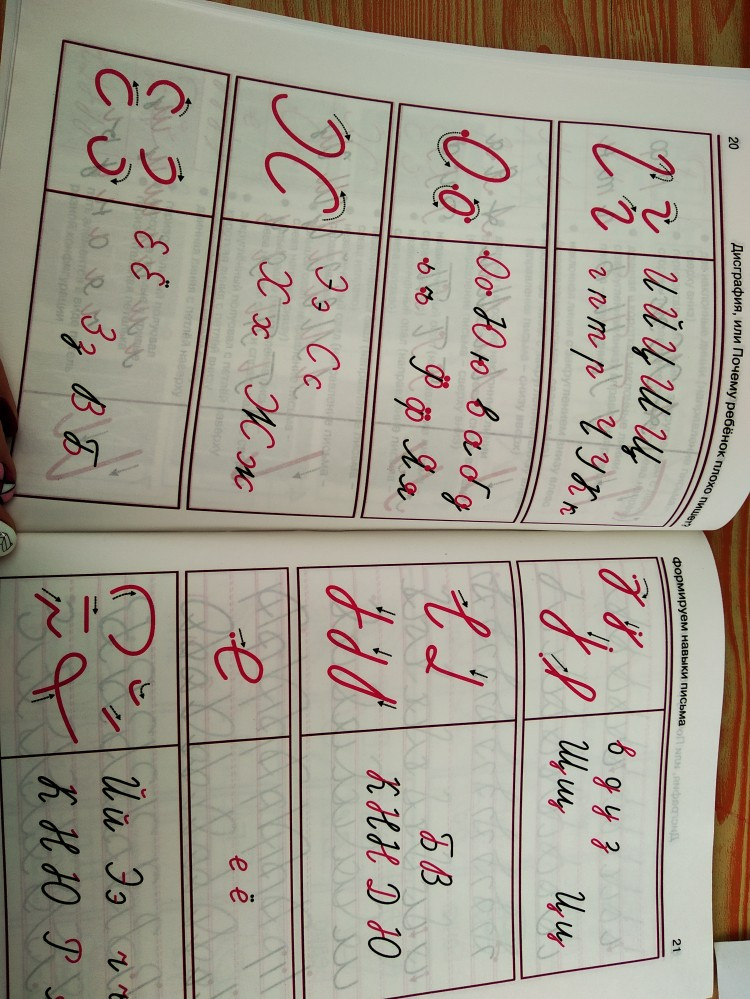 20 Дисграфия, или Почему ребёнок плохо пишет
И Й Ц Ш Щ
г п т р Ч У К п
Оо Юю в а б д
ь ъ Ф ф Я я
Ээ Сс
Хх Жж
Е Ё
Зз В Б
Формируем навыки письма 21
в д у з
Щщ Цц
Б В
К Н Н Д Ю
е ё
Йй Ээ
К Н Ю Р